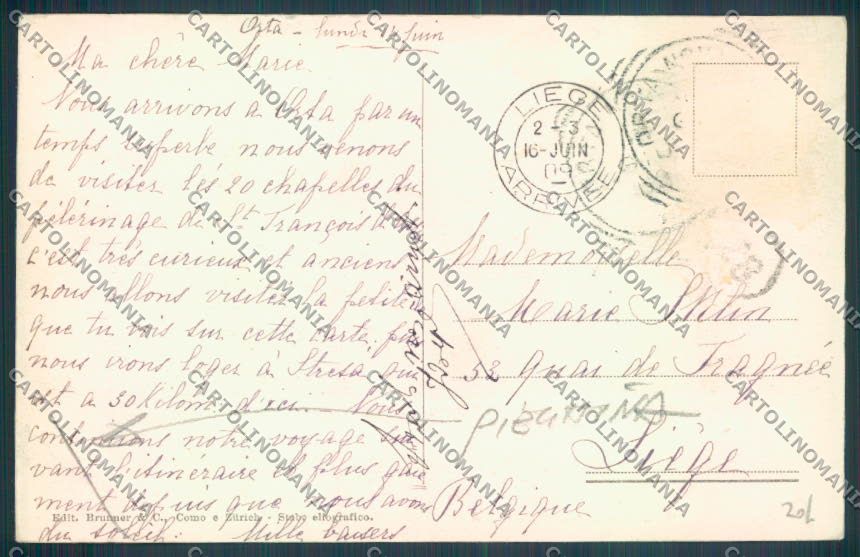 Orta - lundi 14 Juin
Ma chère Marie.
Nous arrivons a Orta par un
temps superbe nous venons
de visiter les 20 chapelles du
pélérinage de St François d'
c'est très curieux et anciens
nous allons visiter la petite
que tu vois sur cette carte, puis
nous irons loger à Stresa qui
est a 30 kilom d'ici. Nous
continuons notre voyage sui
vant l'itinéraire et plus gai
ment depuis que nous avons
du soleil. Mille baisers
Edit. Brunner & C., Como e Zürich - Stabo eliografico.
LIEGE
2-3
16-JUIN
09
Mademoiselle
Marie
53 quai de Fragnée
Liège
Belgique
PIEMONTE
CARTOLINOMANIA